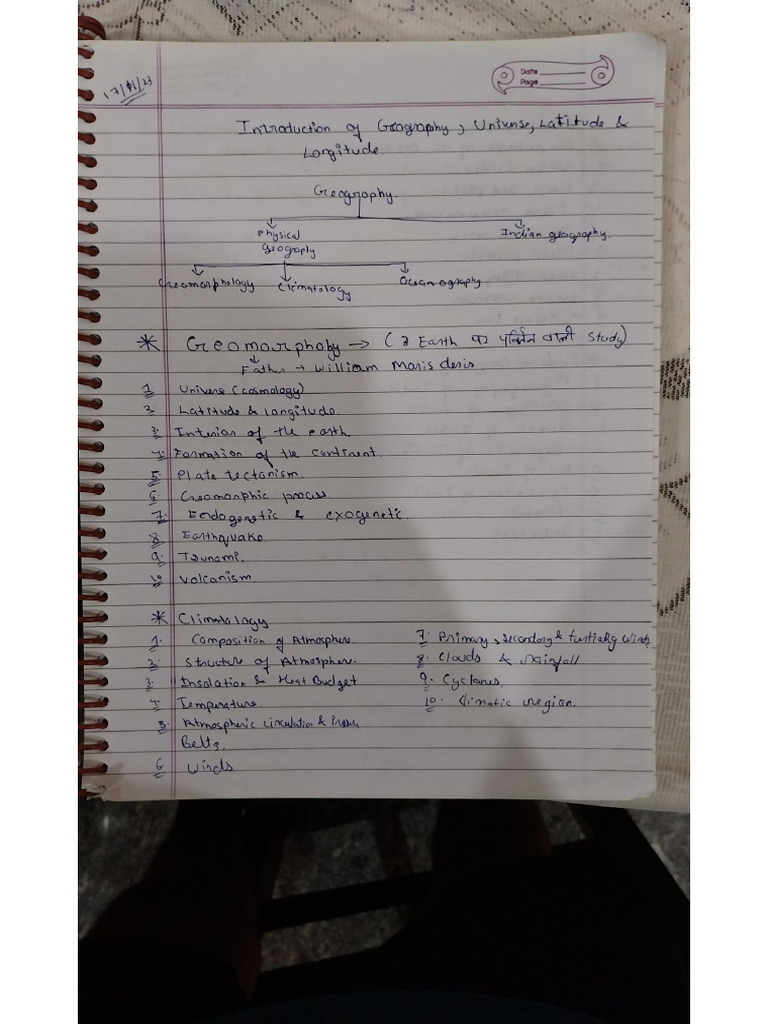 17/11/23
Date
Page
Introduction of Geography, Universe, Latitude &
Longitude.
Geography.
Physical geography
Indian geography.
Geomorphology
Climatology
Oceanography
* Geomorphology → ( Earth का परिवर्तन वाली Study)
Father → William Moris devis.
1. Universe (cosmology)
2. Latitude & longitude.
3. Interior of the earth.
4. Formation of the continent.
5. Plate tectanism.
6. Geomorphic process
7. Endogenetic & exogenetic.
8. Earthquake.
9. Tsunami.
10. Volcanism.
* Climatology
1. Composition of Atmosphere.
2. Structure of Atmosphere.
3. Insolation & Heat Budget
4. Temperature.
5. Atmospheric circulation &
Belts.
6. Winds
7. Primary, Secondary & winds
8. Clouds & rainfall.
9. Cyclones.
10. Climatic region.